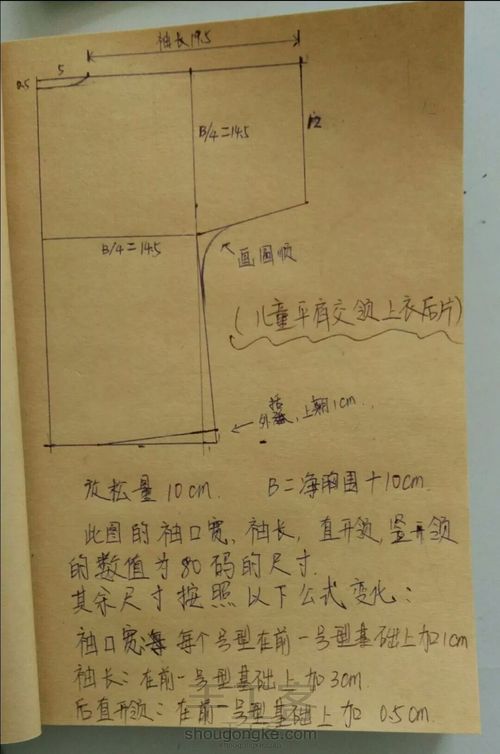 袖长19.5
5
0.5
B/4=14.5
12
B/4=14.5
画圆顺
(儿童平肩交领上衣后片)
外 , 上翘1cm.
放松量10cm. B=净胸围+10cm
此图的袖口宽,袖长,直开领,竖开领
的数值为80码的尺寸.
其余尺寸按照以下公式变化:
袖口宽: 每个号型在前一号型基础上加1cm
袖长:在前一号型基础上加3cm
后直开领:在前一号型基础上加0.5cm.
shoudongke.com